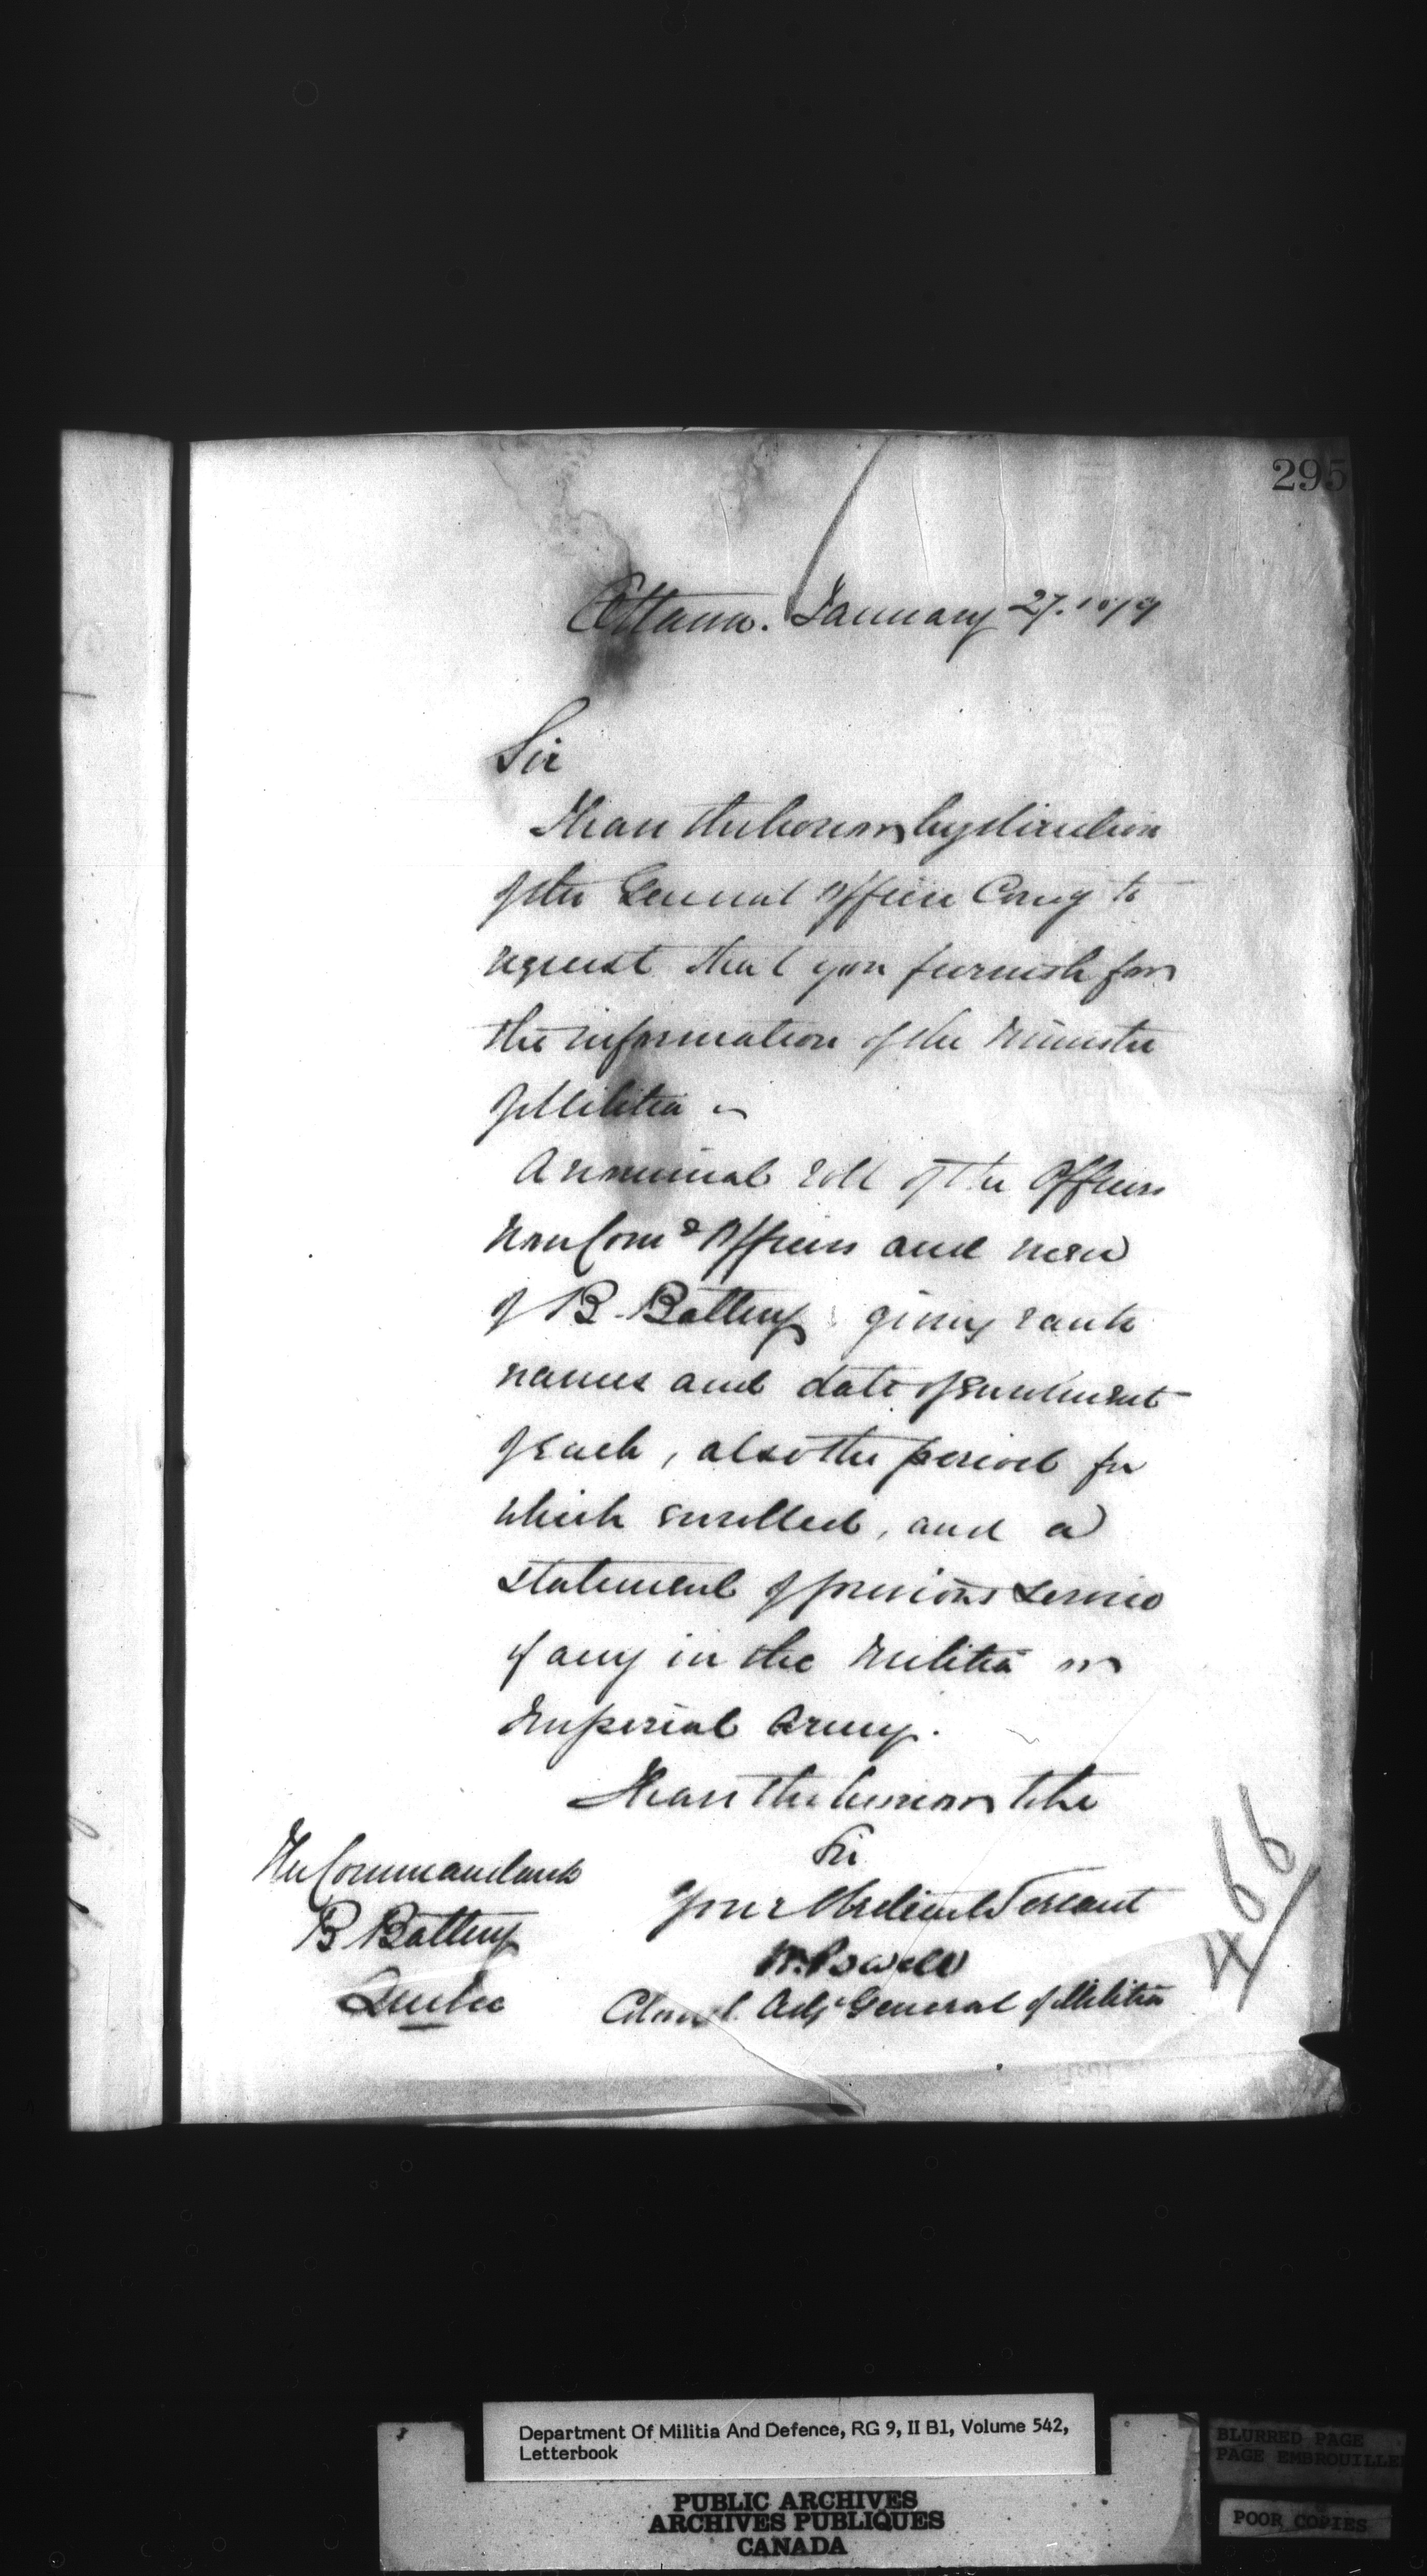 295
Ottawa. January 27. 1879
Sir
I have the honor by direction
of the General Officer Comg to
request that you furnish for
the information of the Minister
of Militia
A nominal roll of the Officers
Non Comd Officers and men
of B. Battery giving rank
names and date of enrolment
of each, also the period for
which enrolled, and a
statement of previous service
if any in the Militia or
Imperial Army.
I have the honor to be
Sir
Your Obedient Servant
W. Powell
Colonel Adjt General of Militia
The Commandant
B Battery
Quebec
466
Department Of Militia And Defence, RG 9, II B1, Volume 542,
Letterbook
PUBLIC ARCHIVES
ARCHIVES PUBLIQUES
CANADA
BLURRED PAGE
PAGE EMBROUILLE
POOR COPIES